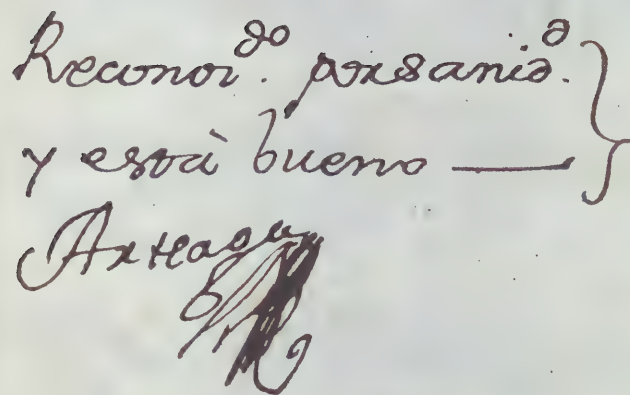 Reconoi.do por sanid.d
y està bueno —
Arteaga